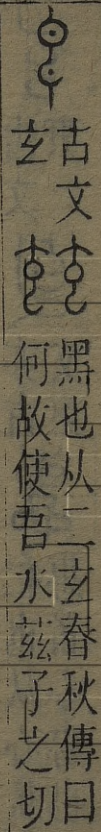 玄
古文
玄
玆
黑也从二玄春秋傳曰
何故使吾水茲子之切